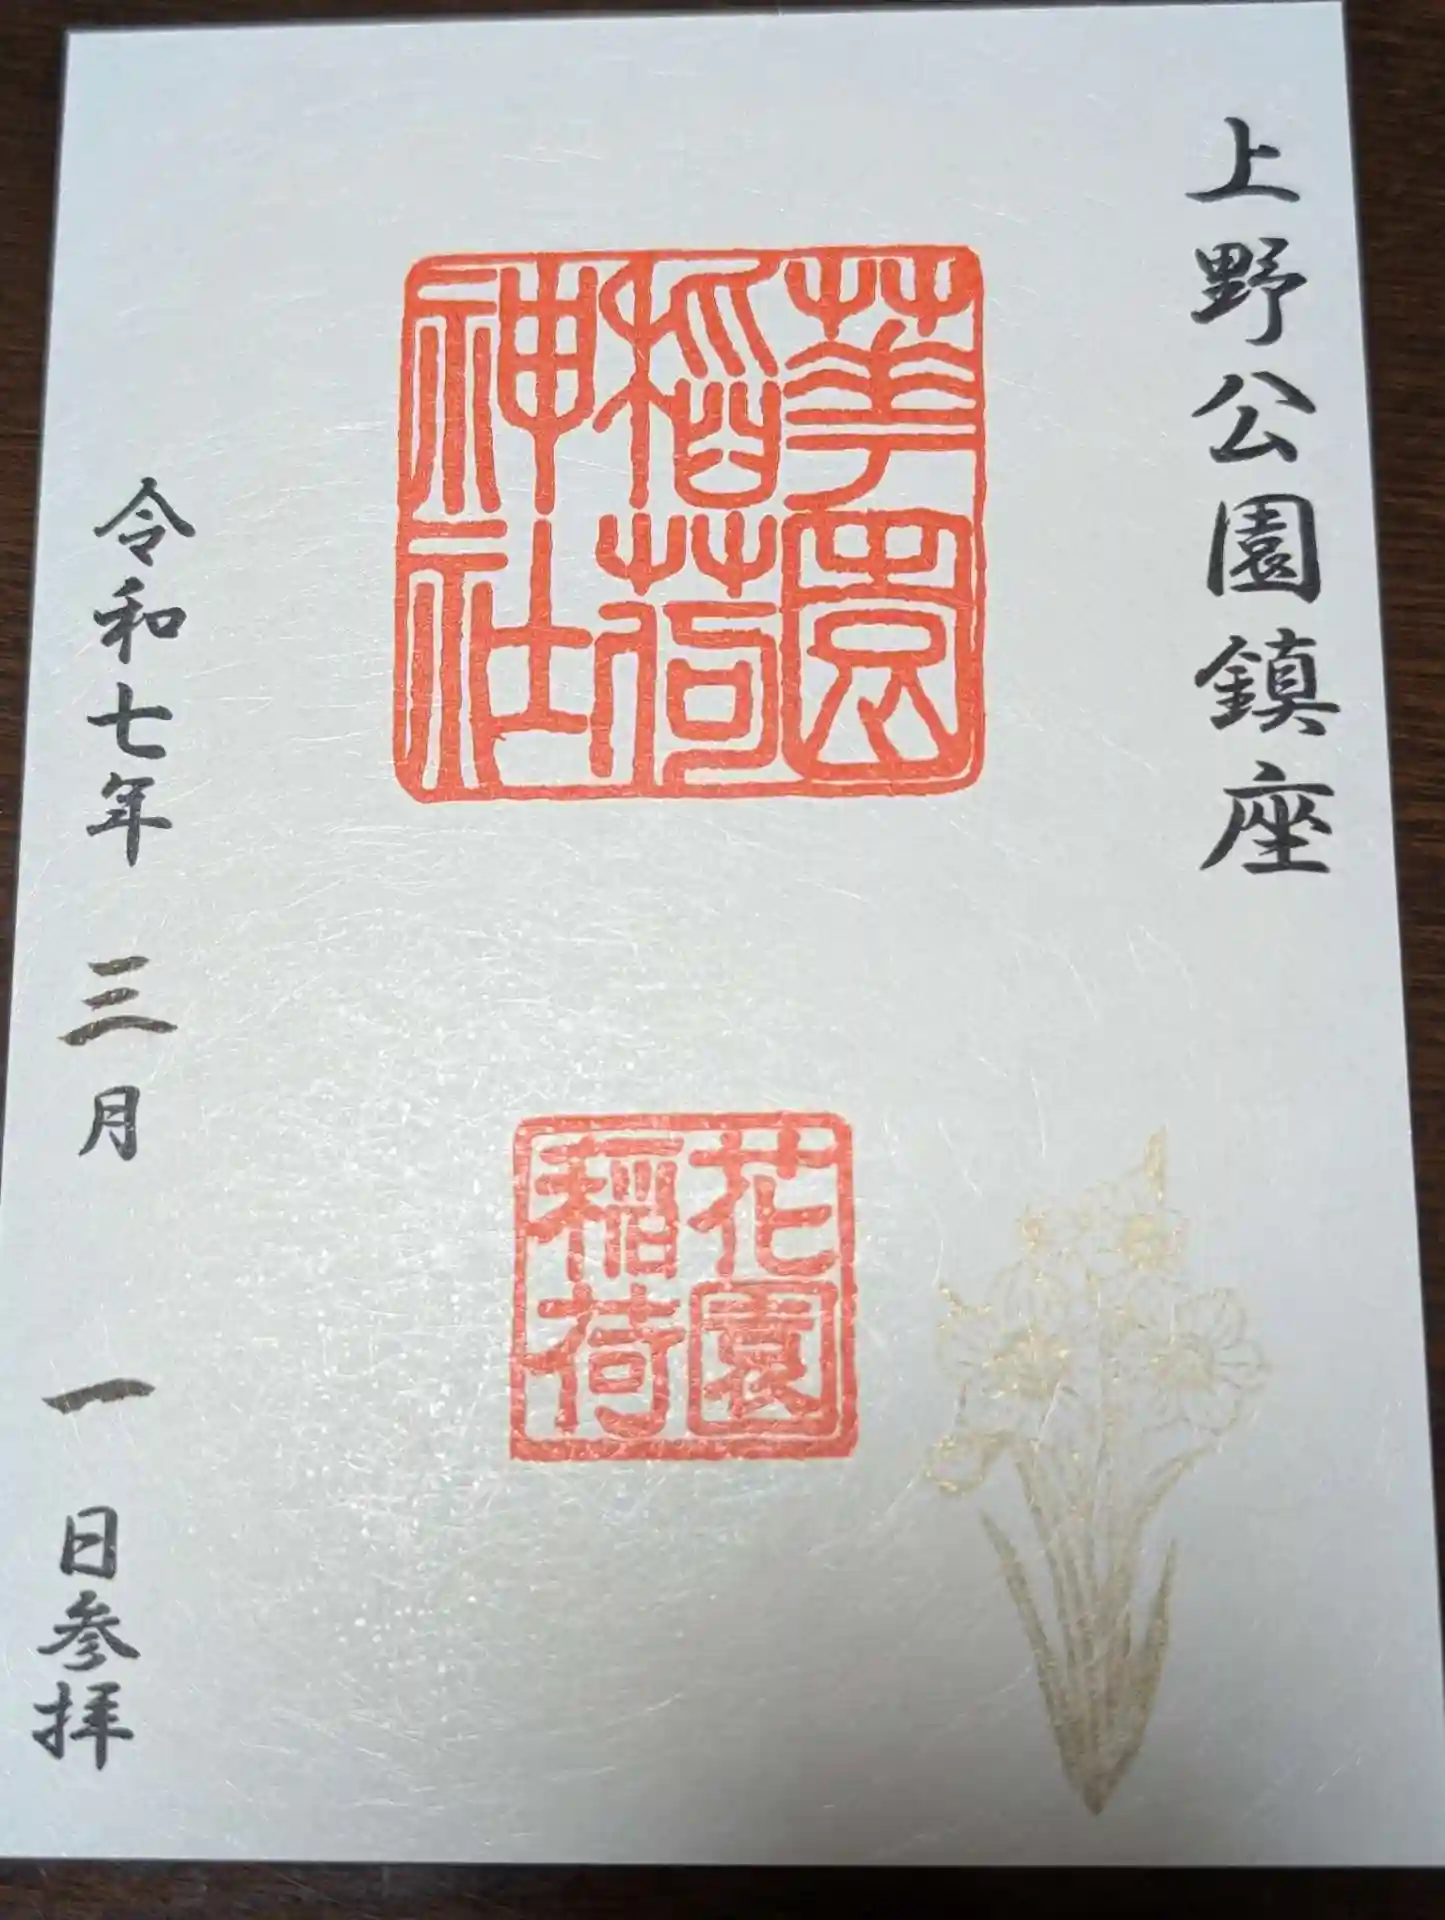 上野公園鎮座
華園
稲荷
神社
花園
稲荷
令和七年 三月 一日参拝